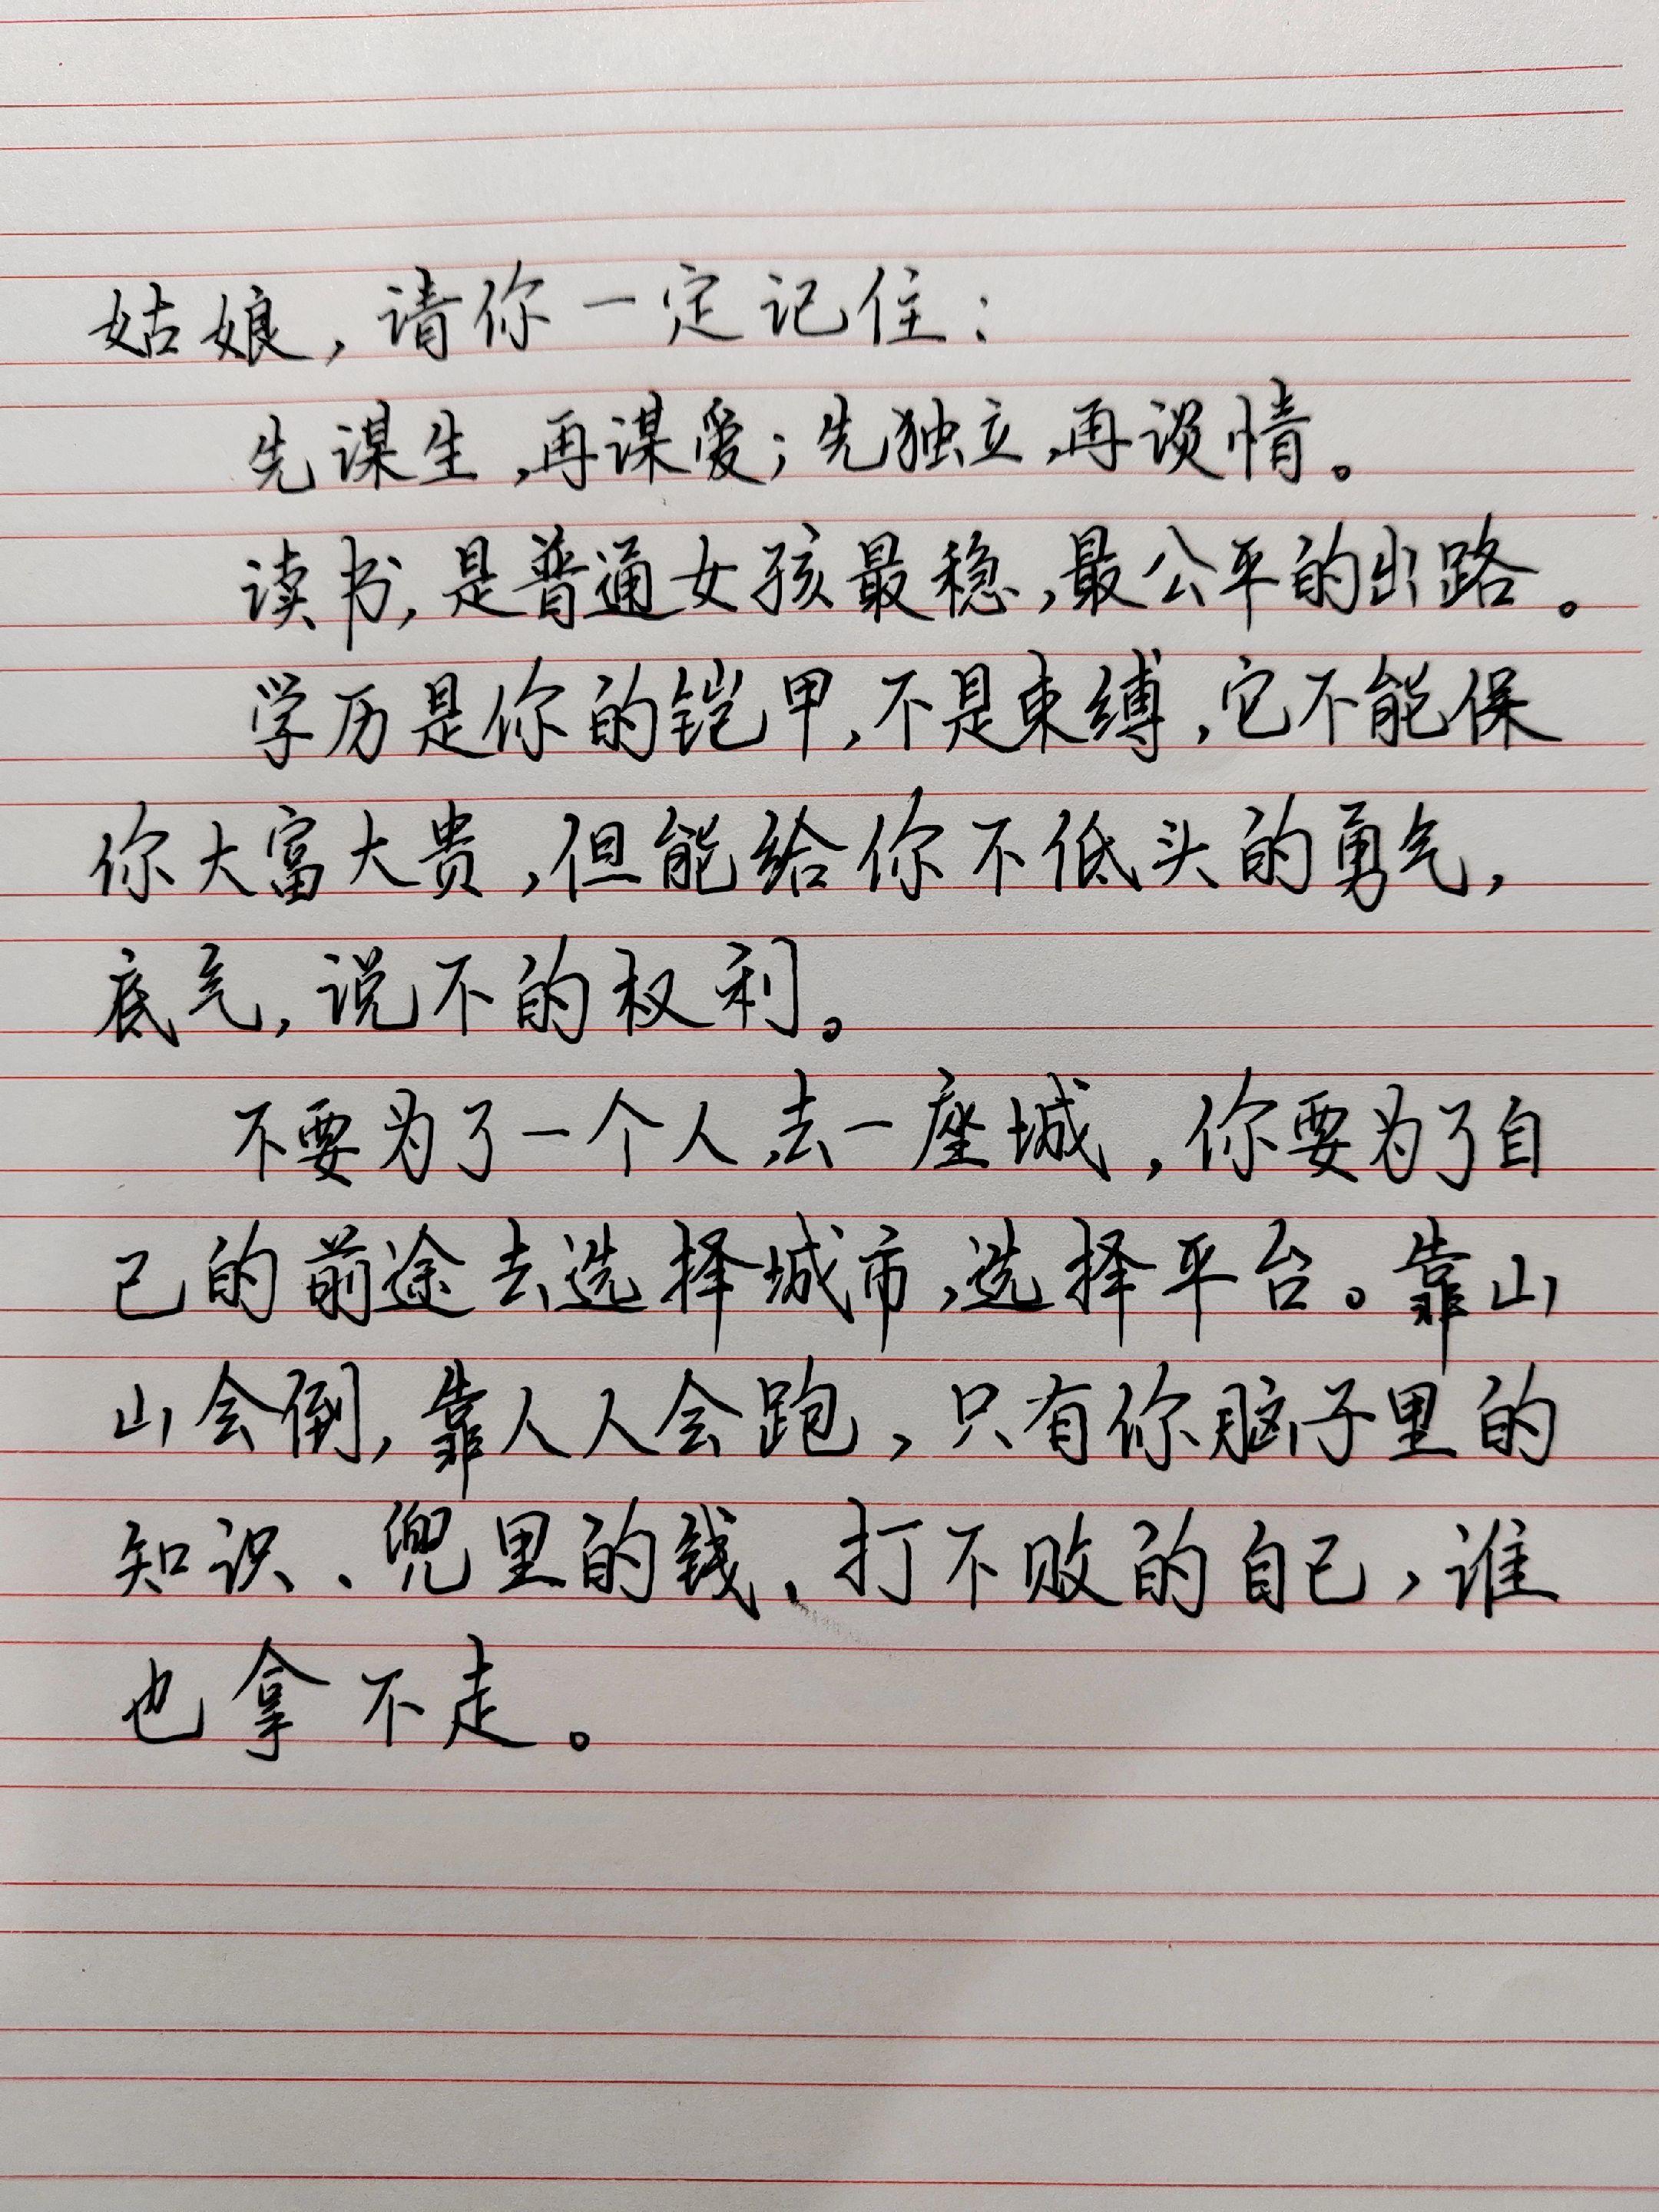 姑娘，请你一定记住：
先谋生，再谋爱；先独立，再谈情。
读书，是普通女孩最稳，最公平的出路。
学历是你的铠甲，不是束缚，它不能保
你大富大贵，但能给你不低头的勇气，
底气，说不的权利。
不要为了一个人，去一座城，你要为了自
己的前途去选择城市，选择平台。靠山
山会倒，靠人人会跑，只有你脑子里的
知识、兜里的钱、打不败的自己，谁
也拿不走。